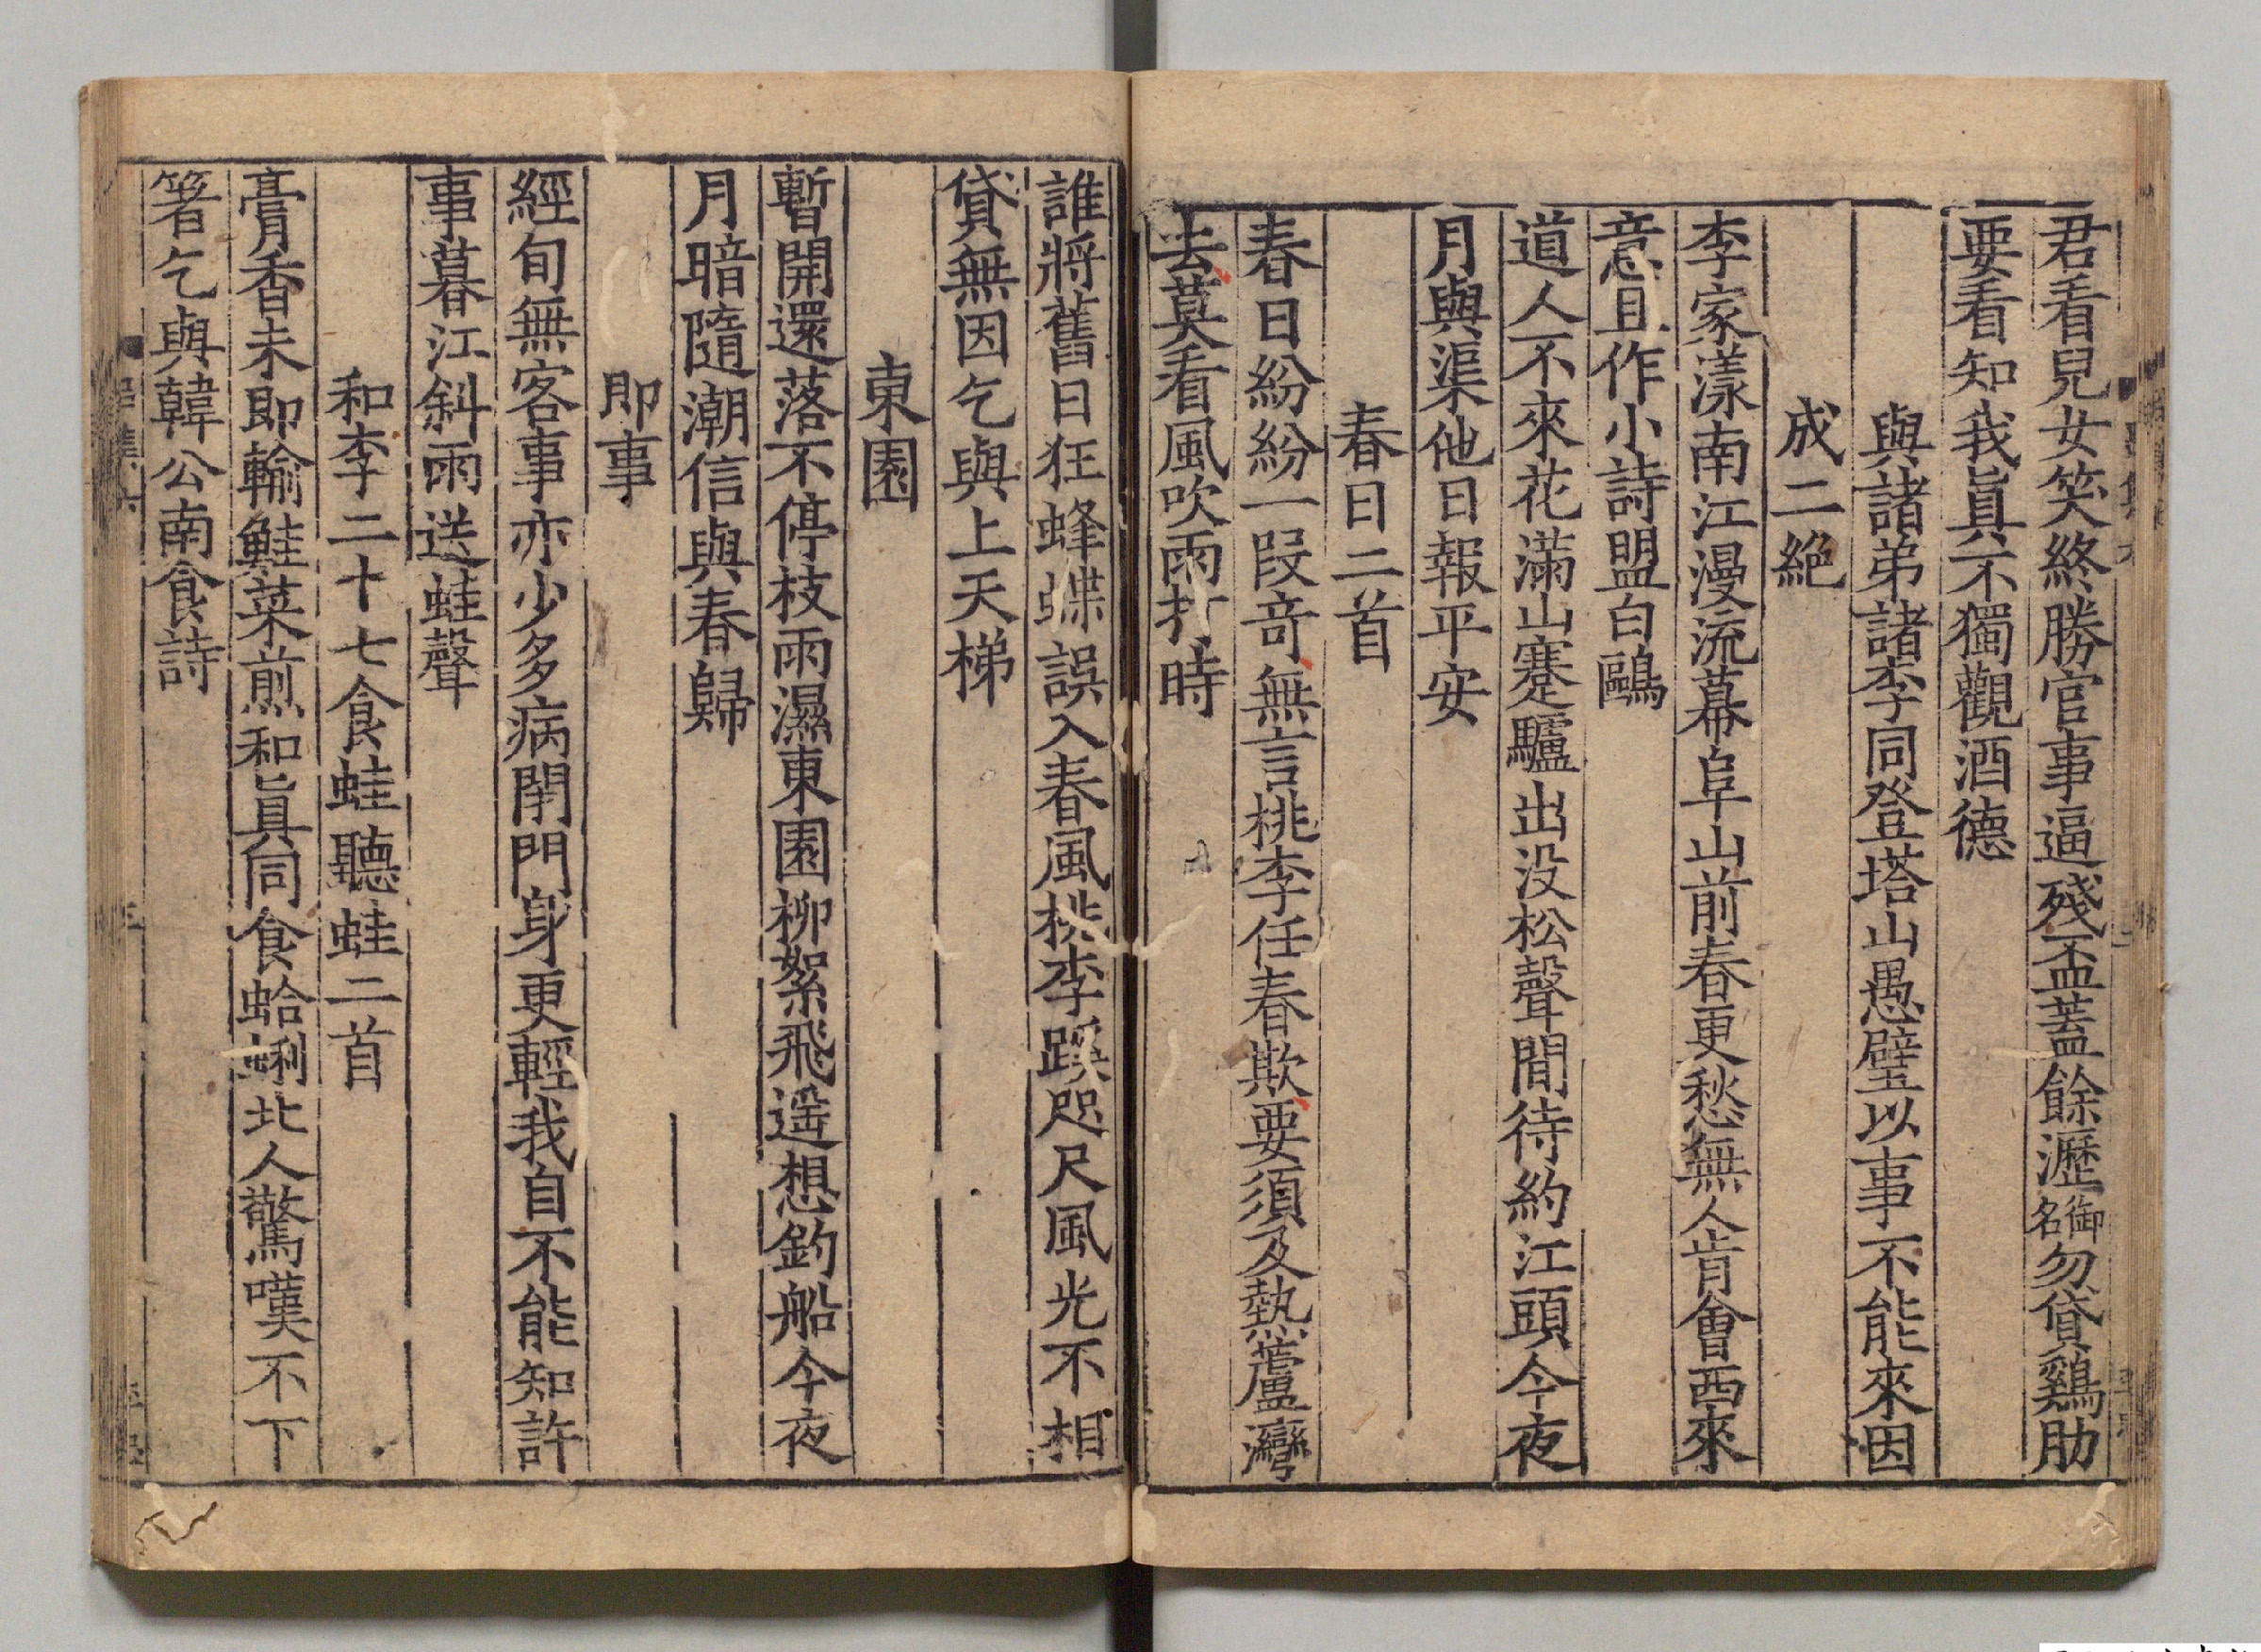 君看兒女笑終勝官事逼殘盃蓋餘瀝御名勿貸鷄肋
要看知我眞不獨觀酒德
與諸弟諸李同登塔山愚璧以事不能來因
成二絶
李家漾南江漫流幕阜山前春更愁無人肯會西來
意且作小詩盟白鷗
道人不來花滿山蹇驢出没松聲間待約江頭今夜
月與渠他日報平安
春日二首
春日紛紛一段竒無言桃李任春欺要須及熱蘆灣
去莫看風吹雨打時
誰將舊日狂蜂蝶誤入春風桃李蹊咫尺風光不相
貸無因乞與上天梯
東園
暫開還落不停枝雨濕東園柳絮飛遥想釣船今夜
月暗隨潮信與春歸
即事
經旬無客事亦少多病閉門身更輕我自不能知許
事暮江斜雨送蛙聲
和李二十七食蛙聽蛙二首
膏香未即輸鮭菜煎和眞同食蛤蜊北人驚嘆不下
箸乞與韓公南食詩